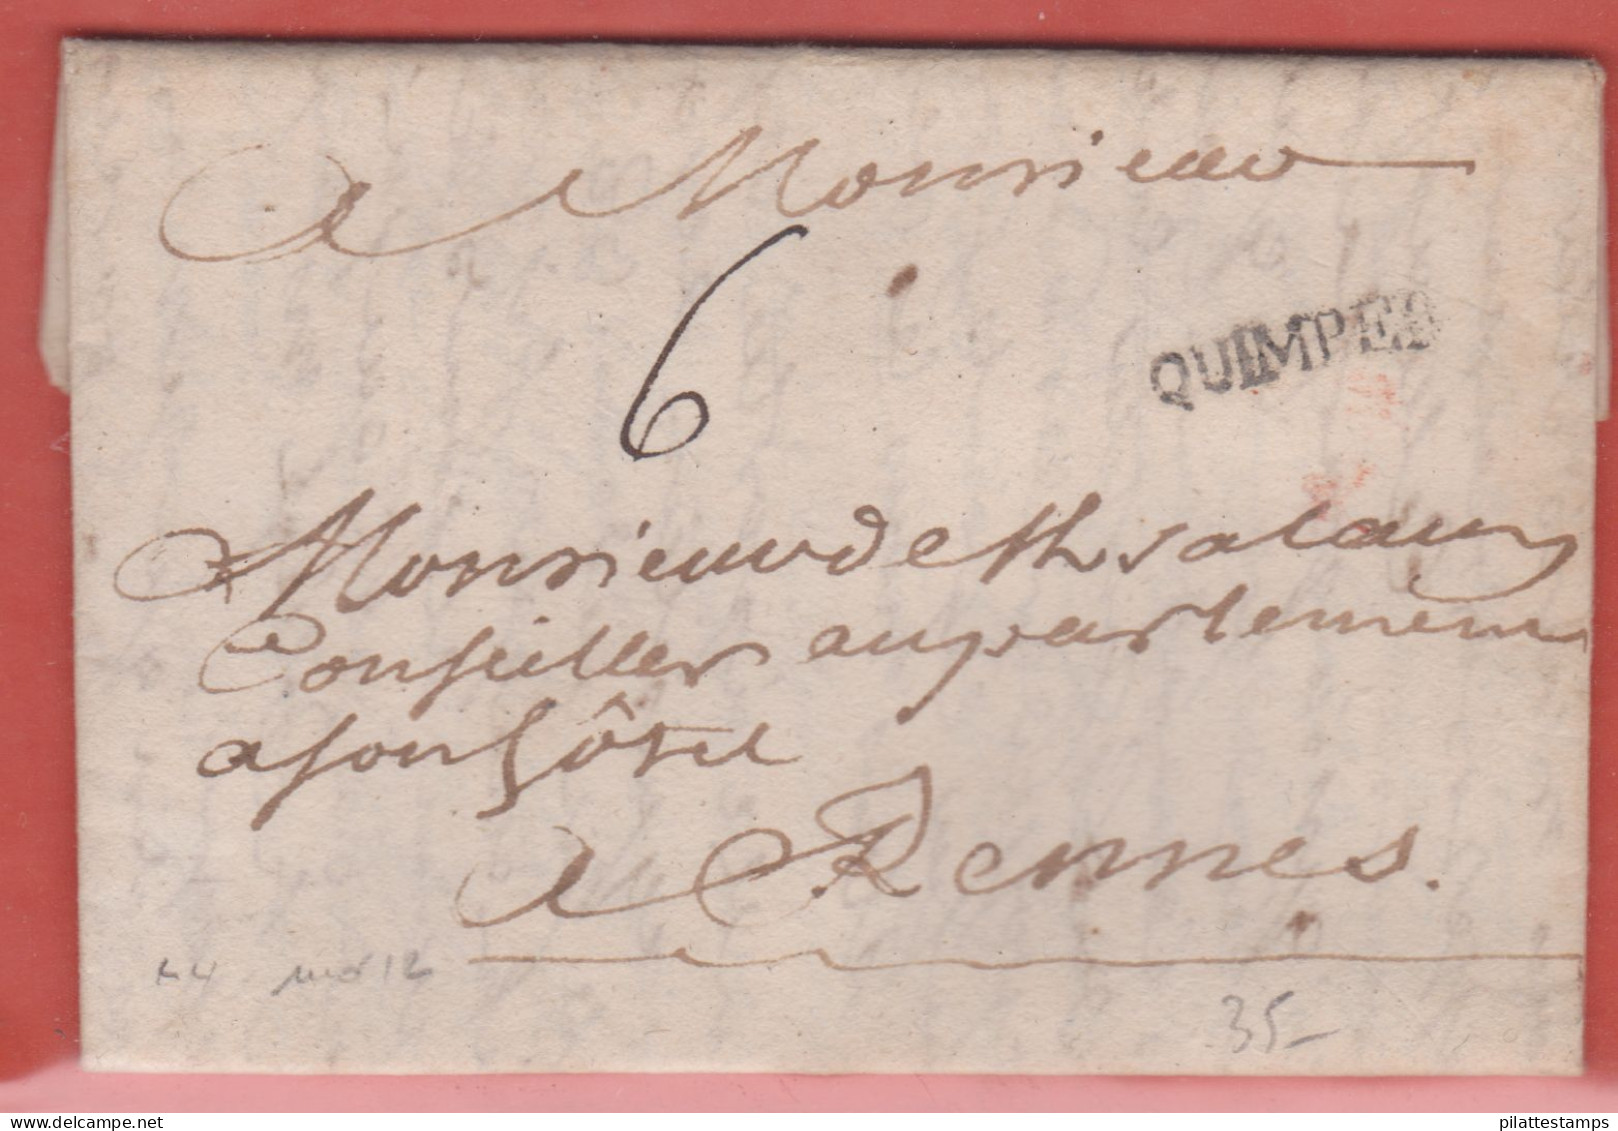 A Monsieur
6
QUIMPER
Monsieur de Kersalaun
Conseiller au parlement
a son hôtel
A Rennes.
12
35-
delcampe.net
pilattestamps